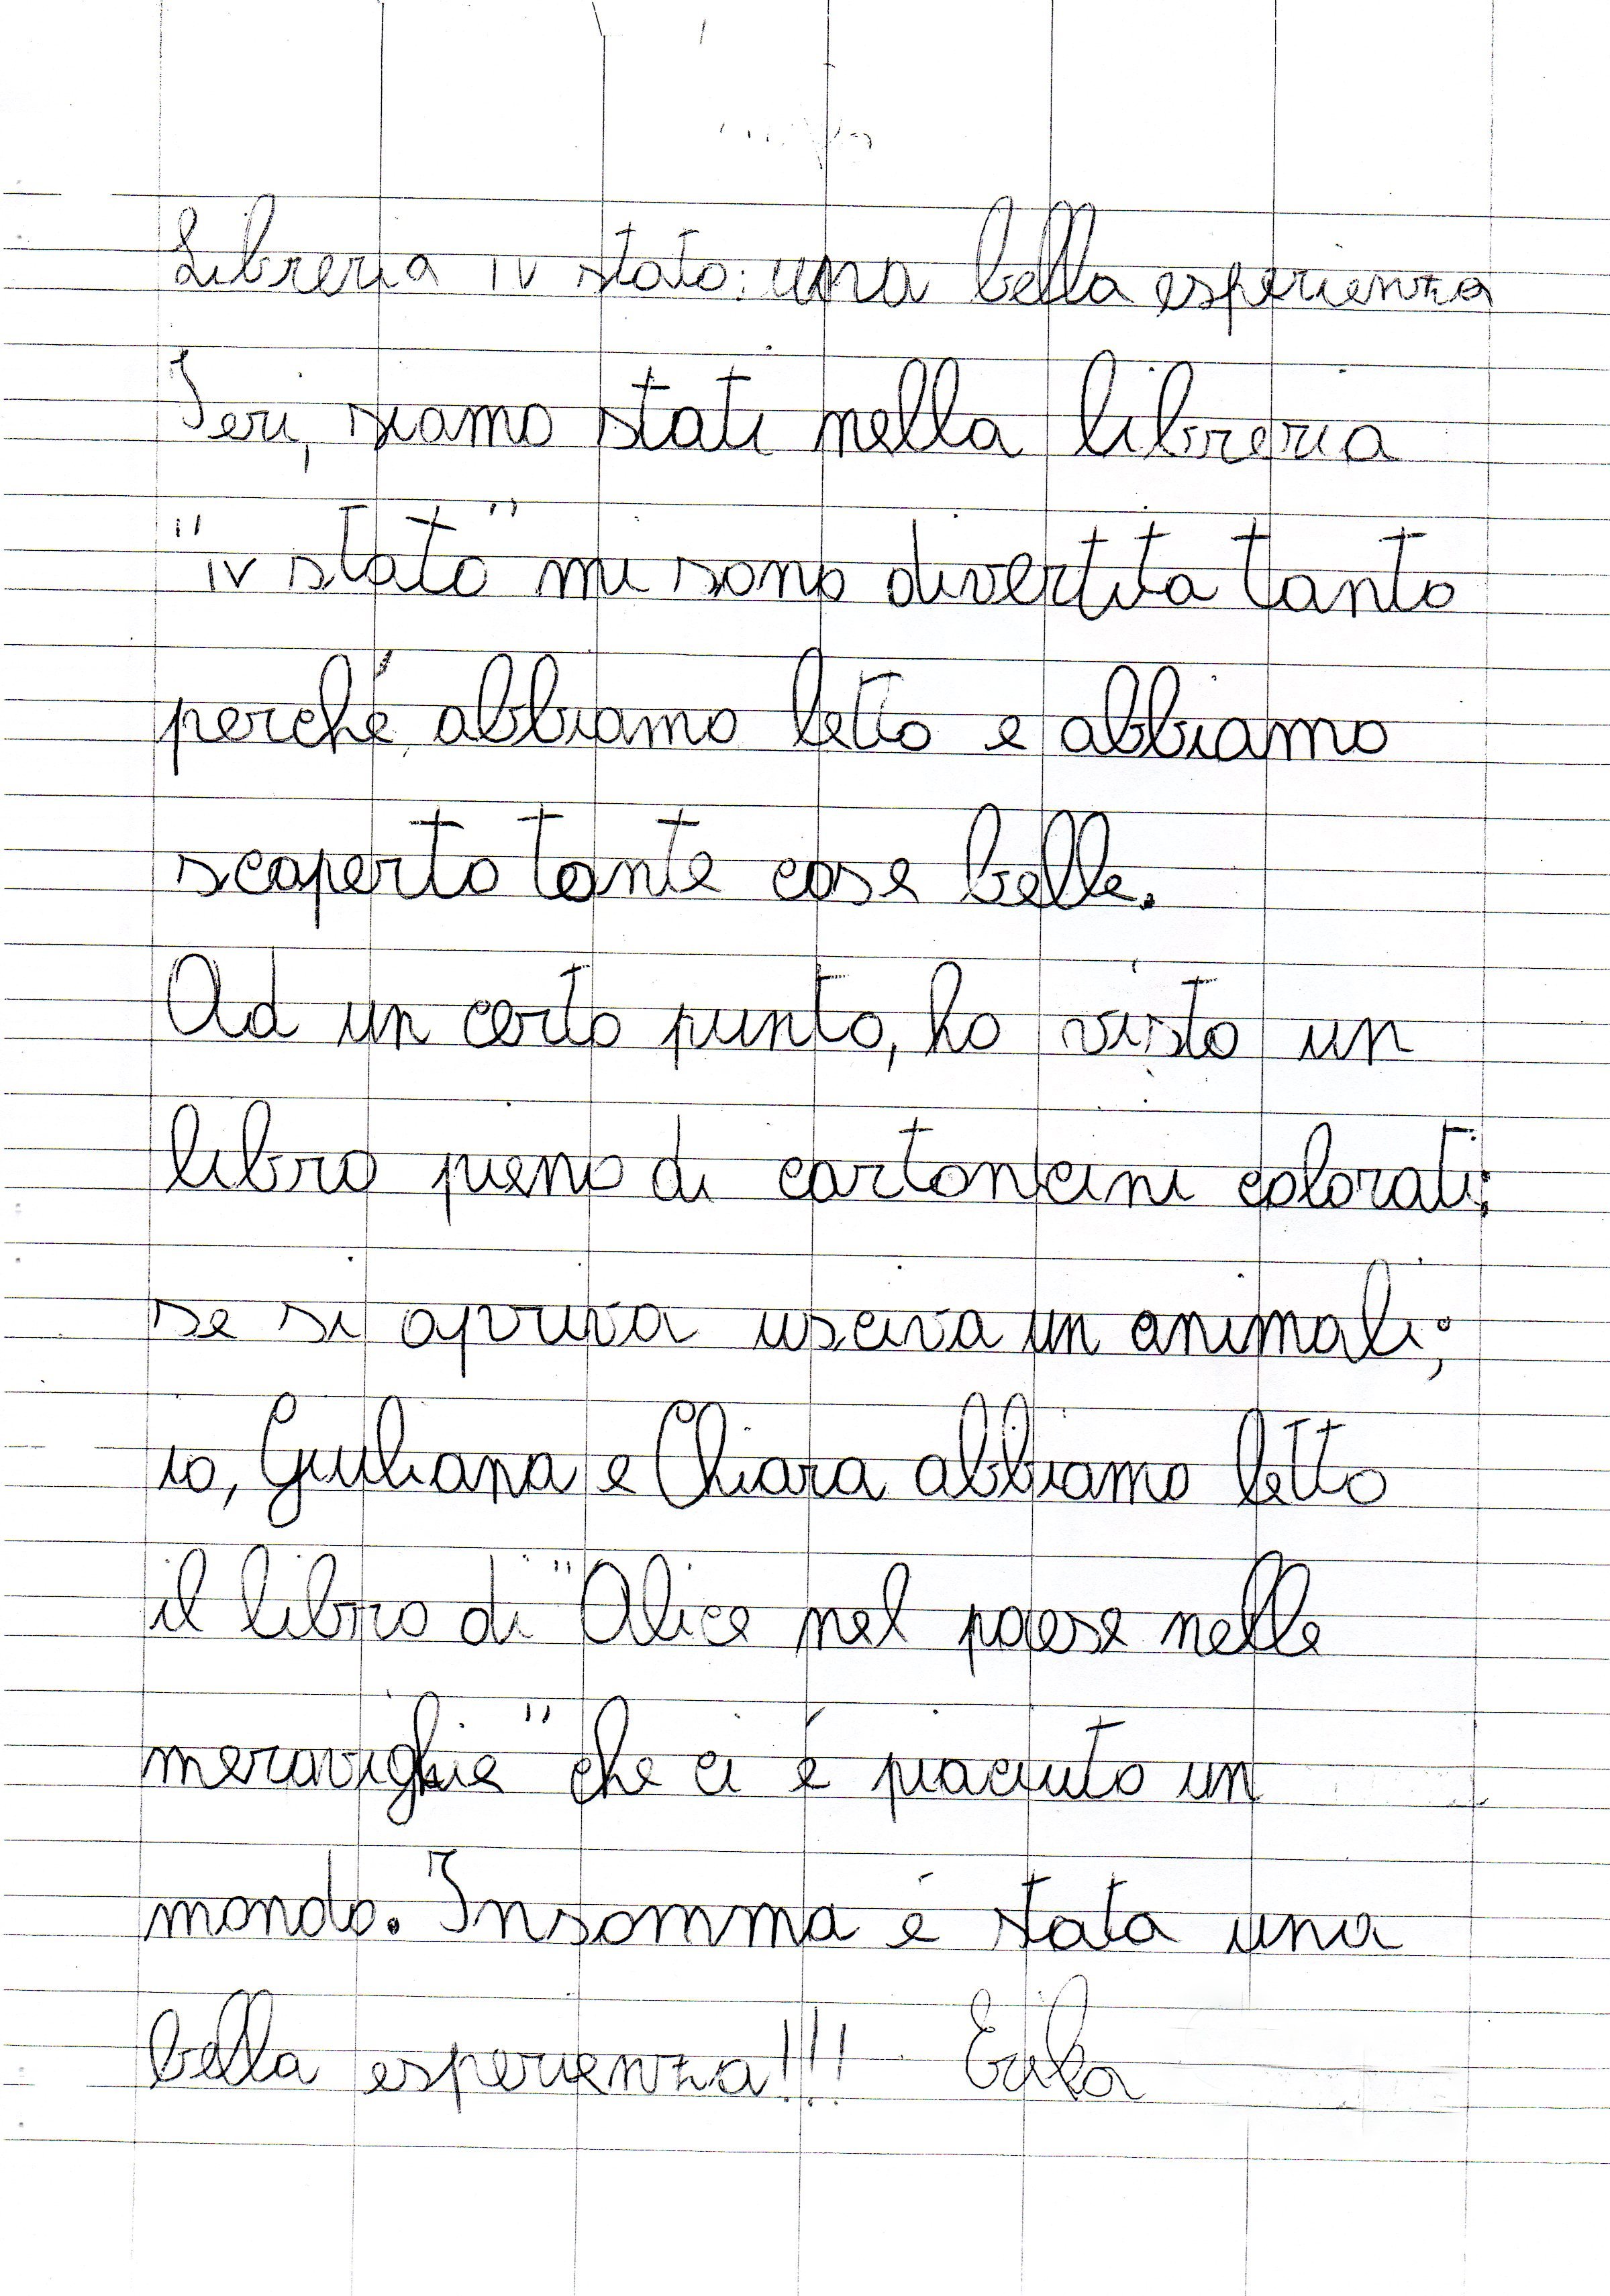 Libreria IV stato: una bella esperienza
Ieri, siamo stati nella libreria
"IV stato" mi sono divertita tanto
perché abbiamo letto e abbiamo
scoperto tante cose belle.
Ad un certo punto, ho visto un
libro pieno di cartoncini colorati;
se si apriva usciva un animali;
io, Giuliana e Chiara abbiamo letto
il libro di "Alice nel paese nelle
meraviglie" che ci é piaciuto un
mondo. Insomma é stata una
bella esperienza!!! Erika